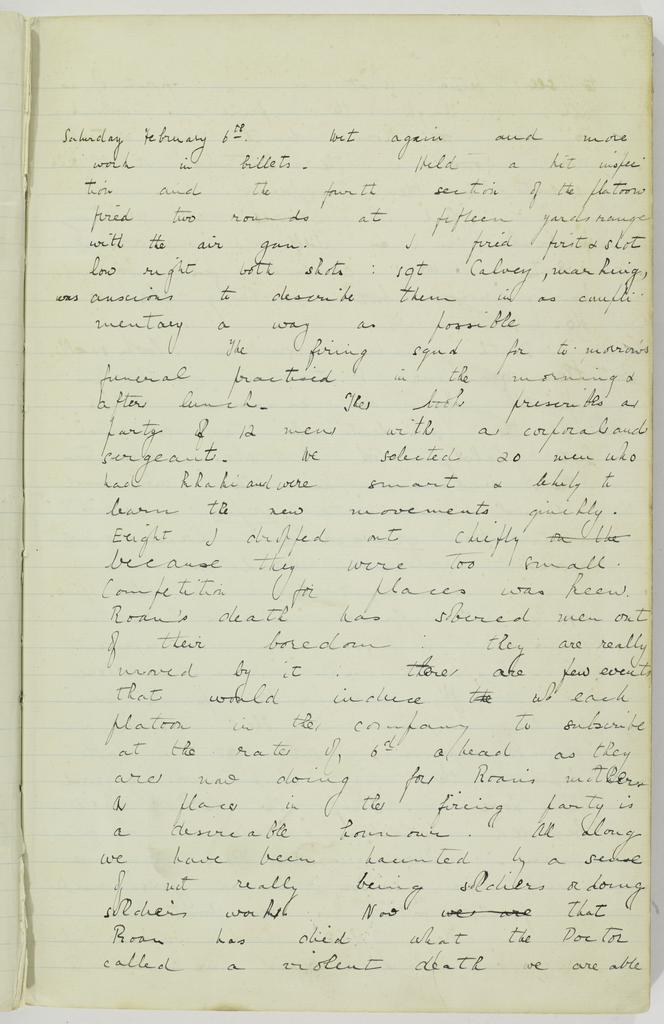 Saturday February 6th. Wet again and more
work in billets. Held a kit inspec
tion and the fourth section of the platoon
fired two rounds at fifteen yards range
with the air gun. I fired first & shot
low right both shots : Sgt Calvey, marking,
was anxious to describe them in as compli
mentary a way as possible
The firing squd for to-morrow's
funeral practised in the morning &
after lunch. The book prescribes a
party of 12 men with a corporal and
sergeant. We selected 20 men who
had khaki and were smart & likely to
learn the new movements quickly.
Eeight I dropped out chiefly or the
because they were too small.
Competition for places was keen.
Roan's death has stirred men out
of their boredom : they are really
moved by it : there are few events
that would induce the each
platoon in the company to subscribe
at the rate of, 6d a head as they
are now doing for Roan's mother.
A place in the firing party is
a desireable honnour. All along
we have been haunted by a sense
of not really being soldiers or doing
soldiers work. Now we are that
Roan has died what the Doctor
called a violent death we are able